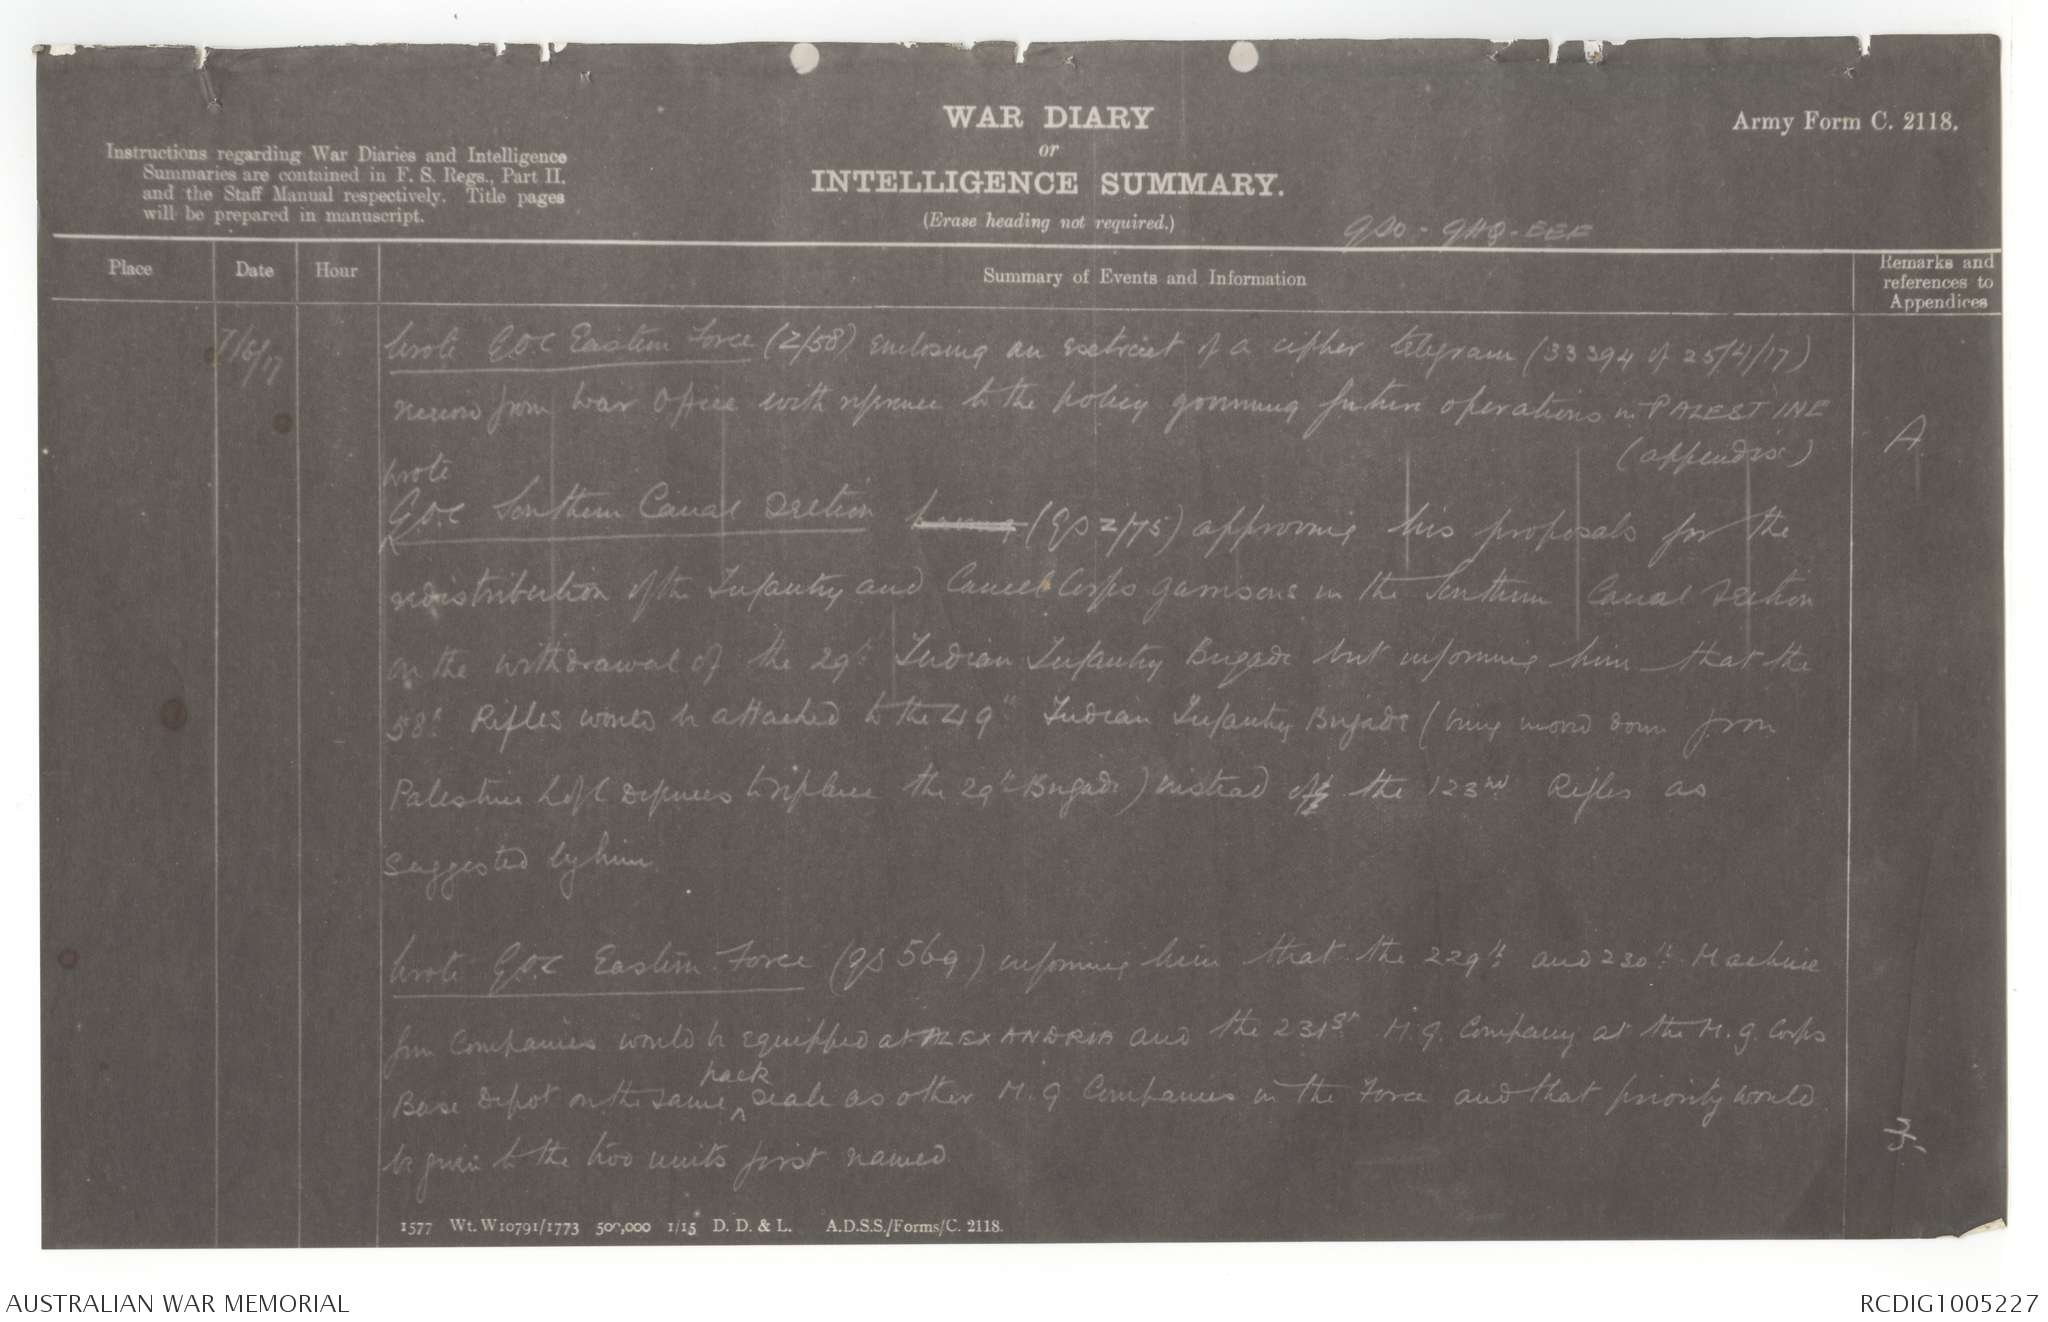 WAR DIARY
or
INTELLIGENCE SUMMARY.
(Erase heading not required.)
Army Form C. 2118.
Instructions regarding War Diaries and Intelligence
Summaries are contained in F. S. Regs., Part II.
and the Staff Manual respectively. Title pages
will be prepared in manuscript.
GSO - GHQ - EEF
Place Date Hour Summary of Events and Information Remarks and references to Appendices
Wrote G.O.C Eastern Force (Z/58) enclosing an extract of a cipher telegram (33394 of 25/4/17)
received from War Office with reference to the policy governing future operations in PALESTINE
(appendix) A
wrote
G.O.C Southern Canal Section (GS Z/75) approving his proposals for the
redistribution of the Infantry and Camel Corps garrisons in the Southern Canal Section
on the withdrawal of the 29th Indian Infantry Brigade but informing him that the
58th Rifles would be attached to the 49th Indian Infantry Brigade (being moved down from
Palestine L of C Defences to replace the 29th Brigade) instead of the 123rd Rifles as
suggested by him.
Wrote G.O.C Eastern Force (GS 569) informing him that the 229th and 230th Machine
Gun Companies would be equipped at ALEXANDRIA and the 231st M.G. Company at the M.G. Corps
pack
Base Depot on the same ^ scale as other M.G. Companies in the Force and that priority would
be given to the two units first named
1577 Wt. W10791/1773 500,000 1/15 D. D. & L. A.D.S.S./Forms/C. 2118.
AUSTRALIAN WAR MEMORIAL
RCDIG1005227